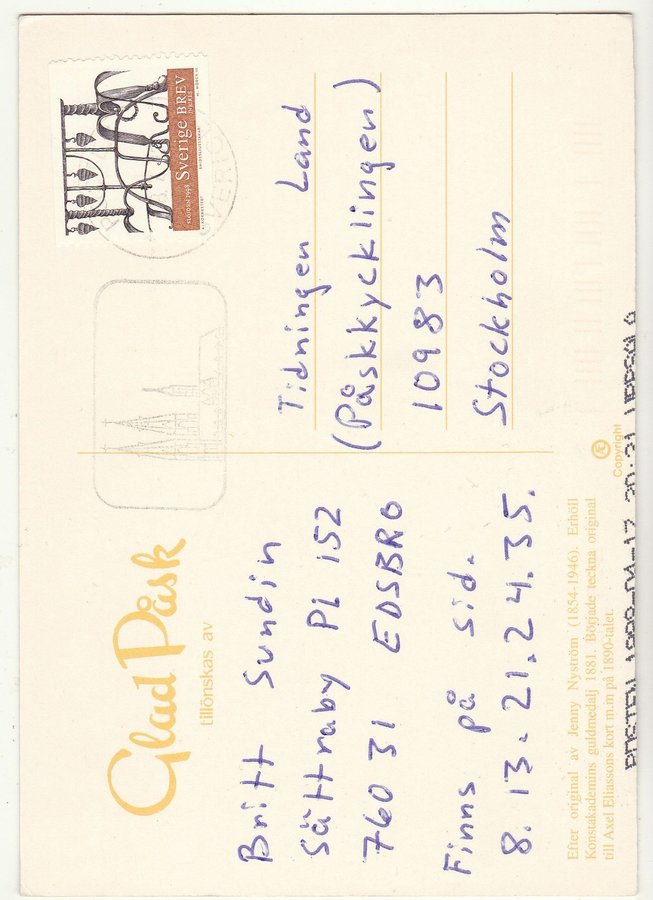 Glad Påsk
tillönskas av
Britt Sundin
Sättraby Pl 152
76031 EDSBRO
Finns på sid.
8. 13. 21. 24. 35.
Efter original av Jenny Nyström (1854-1946). Erhöll
Konstakademins guldmedalj 1881. Började teckna original
till Axel Eliassons kort m.m på 1890-talet.
Sverige BREV
Tidningen Land
(Påskkycklingen)
10983
Stockholm
Æ
Copyright
POSTEN 1998-04-17 20:31 UPPSALA